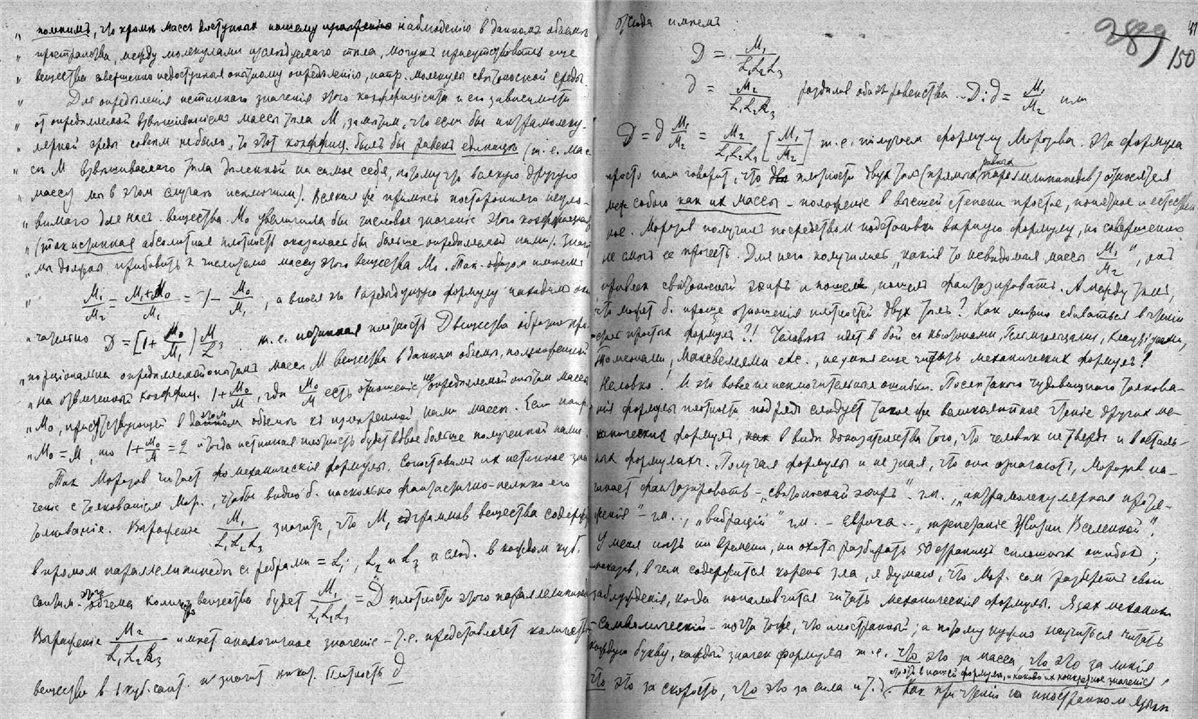 " помнимъ, что кромѣ массъ доступныхъ нашему наблюденію въ данномъ объемѣ
" пространства, между молекулами изслѣдуемаго тѣла, могутъ присутствовать еще
" вещества совершенно недоступныя опытному опредѣленію, напр. молекулы свѣтоносной среды
" Для опредѣленія истиннаго значенія этого коэффиціента и его зависимости
" отъ опредѣляемой взвѣшиваніемъ массы тѣла M, замѣтимъ, что если бы интрамолеку-
" лярной среды совсѣмъ не было, то этотъ коэффиц. былъ бы равенъ единицѣ (т.е. мас-
" сѣ M взвѣшиваемаго тѣла дѣленной на самое себя, потому что всякую другую
" массу мы въ этомъ случаѣ исключили). Всякая же примѣсь посторонняго неуло-
" вимаго для насъ вещества Mo увеличила бы числовое значеніе этого коэффиціента
" (такъ истинная абсолютная плотность оказалась бы больше опредѣляемой нами).
" мы должны прибавить къ числителю массу этого вещества Mo. Такъ образомъ имѣемъ
" M₁/M₂ = M₁+Mo/M₁ = 1 - Mo/M₁, а внося это въ предыдущую формулу находимъ
" чательно D = [1 + Mo/M₁] M/L³ т.е. истинная плотность D вещества обратно про-
" порціональна опредѣляемой опытомъ массѣ M вещества въ данномъ объемѣ, помноженной
" на отвлеченный коэффиц. 1 + Mo/M, гдѣ Mo/M есть отношеніе неопредѣляемой опытомъ массы
" Mo, присутствующей въ данномъ объемѣ къ опредѣляемой нами массѣ. Если напр.
" Mo = M, то 1 + Mo/M = 2 и тогда истинная плотность будетъ вдвое больше полученной нами
Такъ Морозовъ читаетъ механическія формулы. Сопоставимъ ихъ истинное зна-
ченіе съ толкованіемъ Мор., чтобы видно б. насколько фантастично-нелѣпо его
толкованіе. Выраженіе M₁/L₁L₂L₃ значитъ, что M₁ граммовъ вещества содерж.
въ прямомъ параллелипипедѣ съ ребрами = L₁, L₂ и L₃ и слѣд. въ каждомъ куб.
сантим. этого объема колич. вещества будетъ M₁/L₁L₂L₃ = D плотности этого параллелипипеда
Выраженіе M₂/L₁L₂L₃ имѣетъ аналогичное значеніе - т.е. представляетъ количество
вещества въ 1 куб. сант. и значитъ плотность d
отсюда имѣемъ
289
150
D = M₁/L₁L₂L₃
d = M₂/L₁L₂L₃ раздѣливъ оба равенства D:d = M₁/M₂ или
D = d M₁/M₂ = M₂/L₁L₂L₃ [M₁/M₂] т.е. получаемъ формулу Морозова. Эта формула
просто намъ говоритъ, что плотности двухъ тѣлъ (прямыхъ равныхъ параллелипипедовъ) относятся
между собою какъ ихъ массы - положеніе въ высшей степени простое, понятное и естествен-
ное. Морозовъ получилъ посредствомъ подстановки вѣрную формулу, но совершенно
не смогъ ее прочесть. Для него получилась "какая то невидимая масса M₁/M₂",
привлекъ свѣтоносный эфиръ и пошелъ, пошелъ фантазировать. А между тѣмъ,
что можетъ б. проще отношенія плотностей двухъ тѣлъ? Какъ можно сбиваться въ чтеніи
такихъ простыхъ формулъ?!! Человѣкъ идетъ въ бой съ Ньютонами, Клаузіусами,
Томсонами, Максвеллями etc., не умѣя еще читать механическихъ формулъ!
Неловко! И это вовсе не исключительная ошибка. Послѣ такого чудовищнаго толкова-
нія формулы плотности подрядъ слѣдуетъ такое же великолѣпное чтеніе другихъ ме-
ханическихъ формулъ, въ видѣ доказательства того, что человѣкъ не твердъ и въ осталь-
ныхъ формулахъ. Получая формулы и не зная, что онѣ означаютъ, Морозовъ на-
чинаетъ фантазировать - "свѣтоносный эфиръ" г.м., "интрамолекулярная
" - г.м., "вибрацій" г.м. - "трепетаніе Жизни Вселенной".
У меня нѣтъ ни времени, ни охоты разбирать 50 страницъ сплошныхъ ошибокъ;
показавъ, въ чемъ содержится корень зла, я думаю, что Мор. самъ разберетъ свои
заблужденія, когда поналовчится читать механическія формулы. Языкъ механики
- символическій - почти тоже, что иностранный; а потому нужно научиться читать
каждую букву, каждый значекъ формулы т.е. что это за масса, что это за линія
что это за скорость, что это за сила и т.д. Какъ при чтеніи на иностранномъ языкѣ